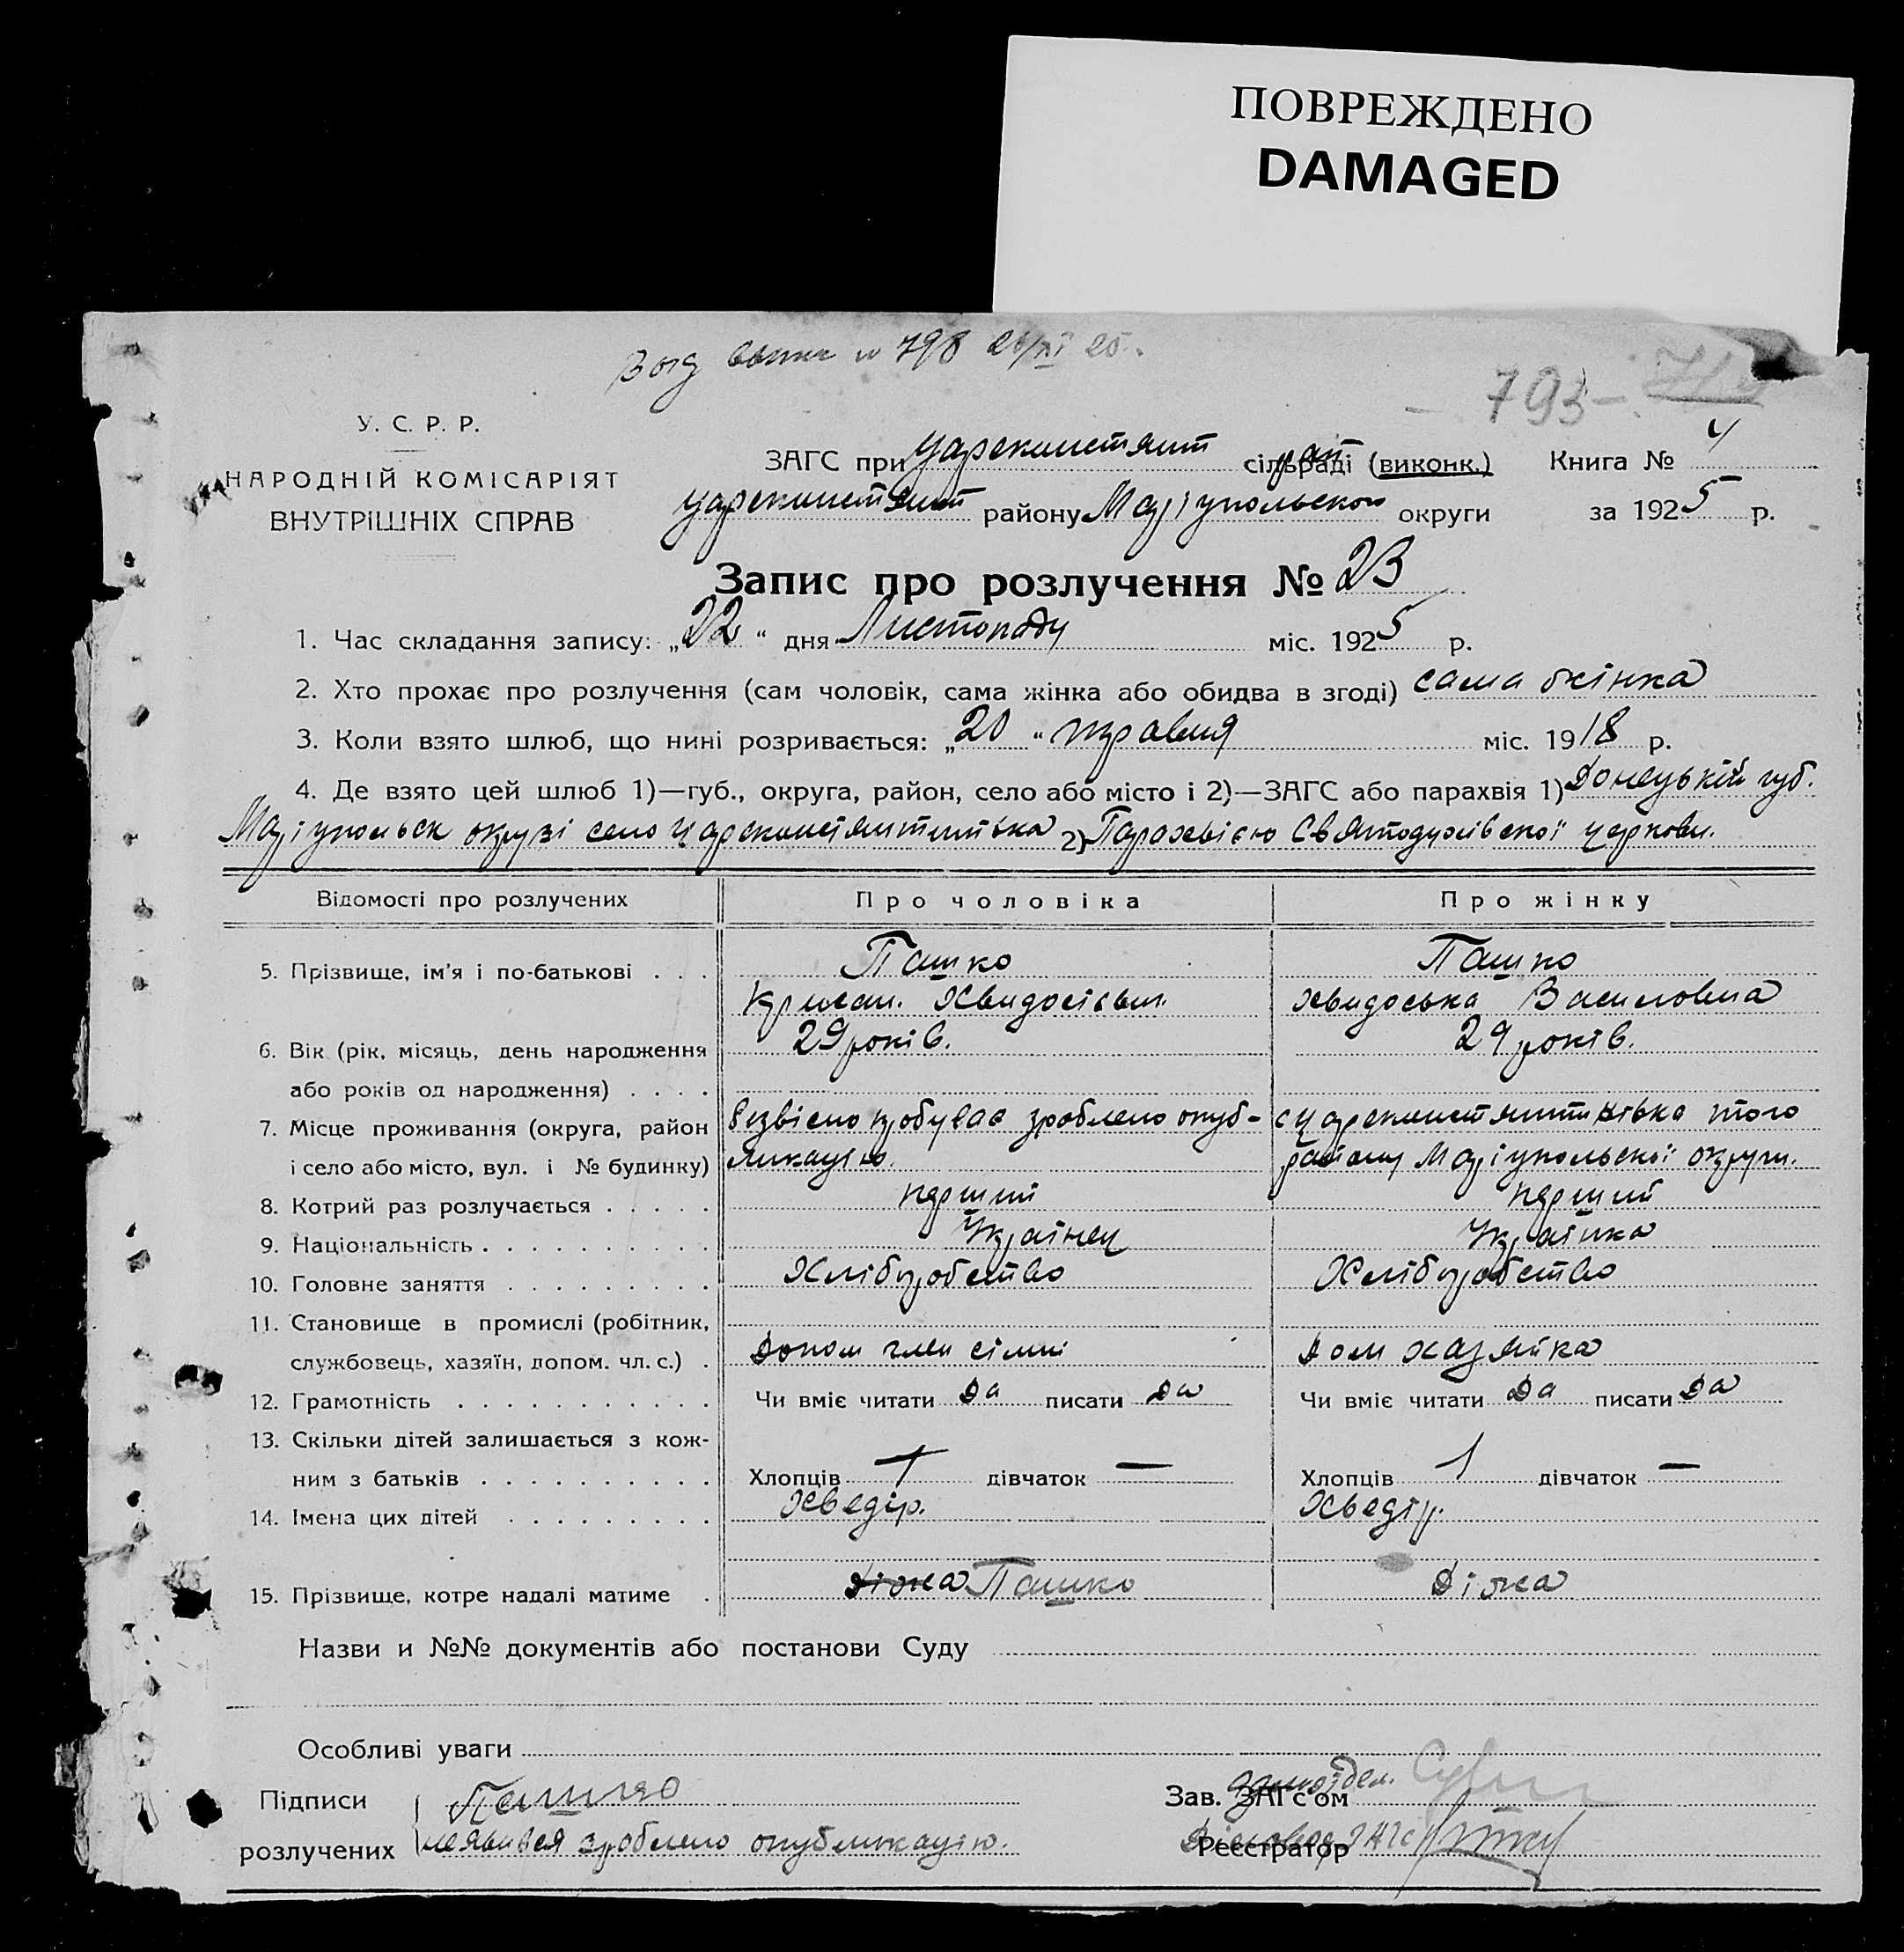 ПОВРЕЖДЕНО
DAMAGED
№ 798 26/XI 25.
793
У. С. Р. Р.
НАРОДНІЙ КОМІСАРІЯТ
ВНУТРІШНІХ СПРАВ
ЗАГС при Цареконстянт рай сільраді (виконк.) Книга № 4
Цареконстянт району Маріупольскои округи за 1925 р.
Запис про розлучення № 23
1. Час складання запису: „22“ дня Листопаду міс. 1925 р.
2. Хто прохає про розлучення (сам чоловік, сама жінка або обидва в згоді) сама жінка
3. Коли взято шлюб, що нині розривається: „20“ травня міс. 1918 р.
4. Де взято цей шлюб 1)—губ., округа, район, село або місто і 2)—ЗАГС або парахвія 1) Донецькій губ.
Маріупольск окрузі село Цареконстянтинтівка 2) Парахвією Святодухівскої церкови.
Відомості про розлучених Про чоловіка Про жінку
5. Прізвище, ім'я і по-батькові . . . Пашко Пашко
Хвидосівич. Хвидоська Василовна
6. Вік (рік, місяць, день народження 29 років. 29 років.
або років од народження) . . . .
7. Місце проживання (округа, район безвісно пробуває зроблено опуб- с Цареконстянтинівка того
і село або місто, вул. і № будинку) ликацію. району Маріупольської округи.
8. Котрий раз розлучається . . . . . перший перший
9. Національність . . . . . . . . . . Українец Українка
10. Головне заняття . . . . . . . . . Хліборобство Хліборобство
11. Становище в промислі (робітник,
службовець, хазяїн, допом. чл. с.) . Допом член сімні Дом хазяйка
12. Грамотність . . . . . . . . . . . Чи вміє читати Да писати Да Чи вміє читати Да писати Да
13. Скільки дітей залишається з кож-
ним з батьків . . . . . . . . . . Хлопців 1 дівчаток — Хлопців 1 дівчаток —
14. Імена цих дітей . . . . . . . . . Хведір. Хведір.
15. Прізвище, котре надалі матиме . Діжа Пашко Діжа
Назви и №№ документів або постанови Суду
Особливі уваги
Підписи Пашко Зав. ЗАГС'ом
розлучених неявився зроблено опубликацію. Реєстратор